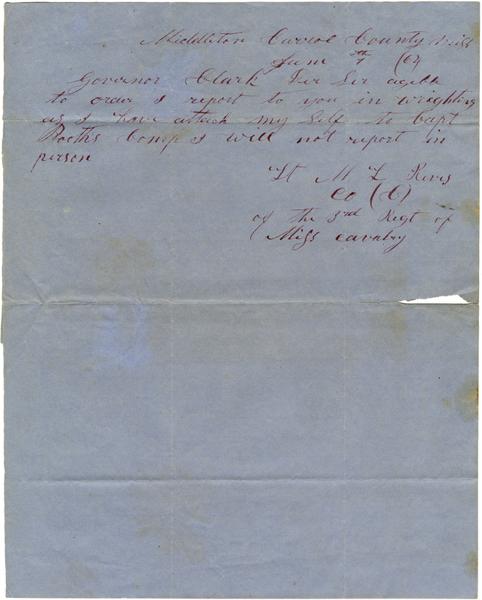 Middleton Carrol County Miss
Jun 7th /64
Governor Clark Dер Sir
to order I report to you in wrighting
as I have attach my self to Capt
Booths Comp I will not report in
person
Lt M L Reves
Co (C)
of the 3rd Regt of
Miss cavalry